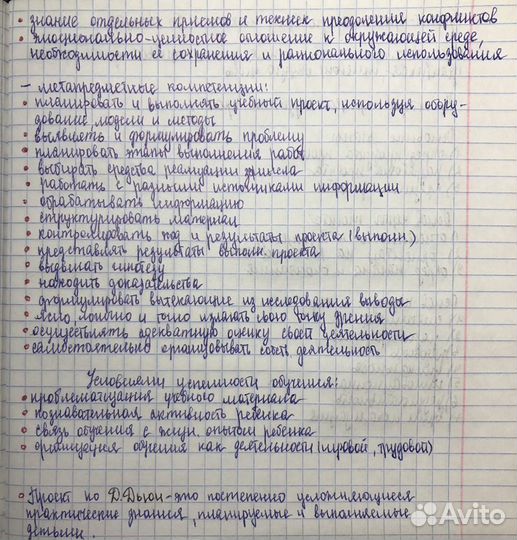 • знание отдельных приемов и техник преодоления конфликтов
• эмоционально-ценностное отношение к окружающей среде,
необходимости ее сохранения и рационального использования
– метапредметные компетенции:
• планировать и выполнять учебный проект, используя обору-
дование, модели и методы
• выявлять и формулировать проблему
• планировать этапы выполнения работ
• выбирать средства реализации
• работать с разными источниками информации
• обрабатывать информацию
• структурировать материал
• контролировать ход и результаты проекта (выполн.)
• представлять результаты выполн. проекта
• выдвигать гипотезу
• находить доказательства
• формулировать вытекающие из исследования выводы
• ясно, логично и точно излагать свою точку зрения
• осуществлять адекватную оценку своей деятельности
• самостоятельно организовывать собств. деятельность
Условиями успешности обучения:
• проблематизация учебного материала
• познавательная активность ребенка
• связь обучения с жизн. опытом ребенка
• организация обучения как деятельности (игровой, трудовой)
• Проект по Д. Дьюи – это постепенно усложняющиеся
практические знания, планируемые и выполняемые
детьми.
Avito